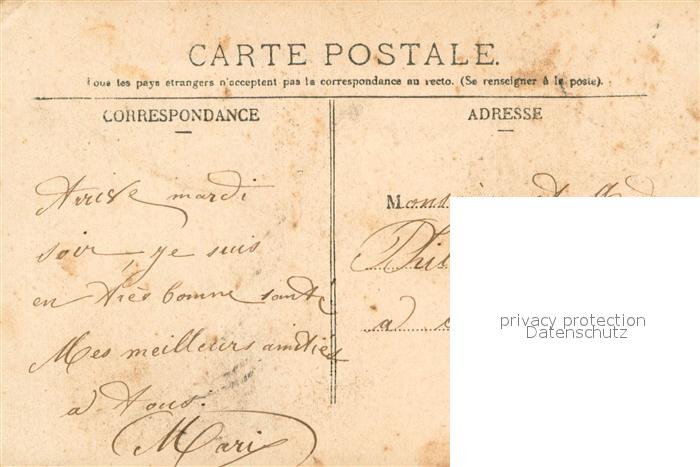 CARTE POSTALE.
Tous les pays etrangers n'acceptent pas la correspondance au recto. (Se renseigner à la poste).
CORRESPONDANCE
ADRESSE
Arrive mardi
soir, je suis
en très bonne santé
Mes meilleurs amitiés
a tous.
Mari
Phil
a
privacy protection
Datenschutz